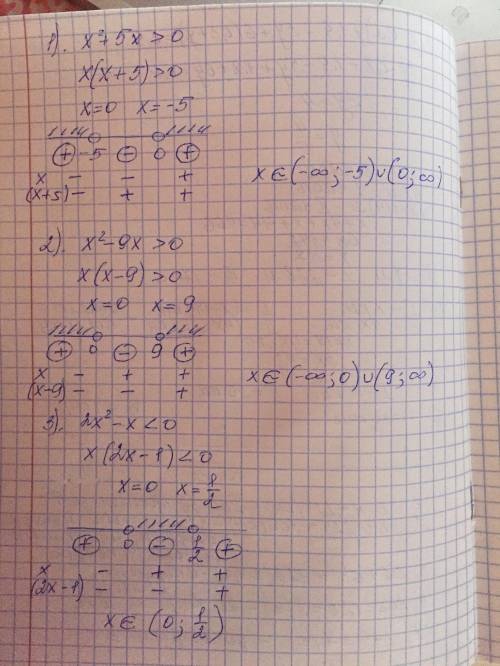 1). x²+5x>0
x(x+5)>0
x=0 x=-5
+ -5 - 0 +
x - - +
(x+5) - + +
x∈(-∞;-5)∪(0;∞)
2). x²-9x>0
x(x-9)>0
x=0 x=9
+ 0 - 9 +
x - + +
(x-9) - - +
x∈(-∞;0)∪(9;∞)
3). 2x²-x<0
x(2x-1)<0
x=0 x=1/2
+ 0 - 1/2 +
x - + +
(2x-1) - - +
x∈(0;1/2)